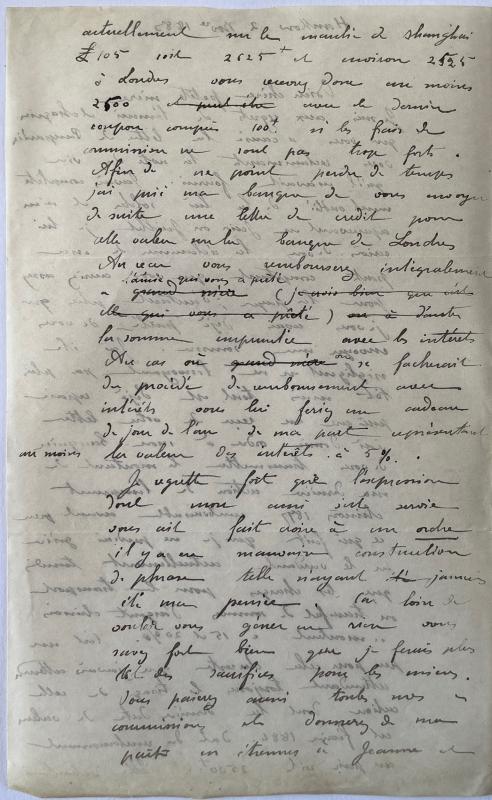 actuellement sur le marché de Shanghai
£ 105 soit 2625 f et environ 2525
à Londres vous recevrez donc au moins
2500 et peut être avec le dernier
coupon compris 100 f. si les frais de
commission ne sont pas trop forts.
Afin de ne point perdre de temps
j'ai prié ma banque de vous envoyer
de suite une lettre de crédit pour
elle valeur sur la banque de Londres
Au reçu vous rembourserez intégralement
l'amie qui vous a prêté
à grand mère (je crois bien que c'est
elle qui vous a prêté) ou à d'autre
la somme empruntée avec les intérêts
Au cas où grand mère on se facherait
du procédé de remboursement avec
intérêts vous lui feriez un cadeau
de jour de l'an de ma part représentant
au moins la valeur des intérêts à 5%.
Je regrette fort que l'expression
dont mon ami s'est servie
vous ait fait croire à un ordre
il y a eu mauvaise construction
de phrase telle n'ayant jamais
été ma pensée. Car loin de
vouloir vous gener en rien vous
savez fort bien que je ferais plus
des sacrifices pour les miens.
Vous paierez aussi toutes mes
commissions et donnerez de ma
part en étrennes à Jeanne et